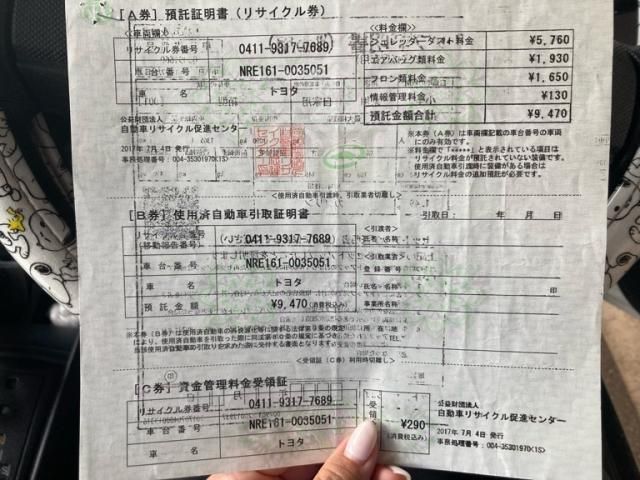 [A券] 預託証明書(リサイクル券)
<車両欄>
リサイクル券番号 0411-9317-7689
車台番号 NRE161-0035051
車名 トヨタ
<料金欄>
シュレッダーダスト料金 ¥5,760
エアバッグ類料金 ¥1,930
フロン類料金 ¥1,650
情報管理料金 ¥130
預託金額合計 ¥9,470
公益財団法人
自動車リサイクル促進センター
2017年 7月 4日 発行
事務処理番号:004-35301970(1S)
※本券(A券)は車両欄記載の車台番号の車両
にのみ有効です。
※料金欄で「*****」と表示されている項目は
リサイクル料金が預託されていない装備です。
使用済自動車引渡時に装備がある場合は
リサイクル料金の追加預託が必要です。
<使用済自動車引渡時、引取業者切離し>
[B券] 使用済自動車引取証明書
引取日: 年 月 日
リサイクル券番号
(移動報告番号) 0411-9317-7689
車台番号 NRE161-0035051
車名 トヨタ
預託金額 ¥9,470(消費税込み)
<引渡者>
氏名・名称:
<引取業者>
登録番号:
氏名・名称: 印
事業所名:
所在地:
TEL:
※本券(B券)は使用済自動車の再資源化等に関する法律第80条の規定
により、使用済自動車を引取った際に同法第80条の規定に基づき
当該使用済自動車の引取りを求めた者に交付する書面となります。
<受領証(C券)利用時切離し>
[C券] 資金管理料金受領証
リサイクル券番号 0411-9317-7689
車台番号 NRE161-0035051
車名 トヨタ
受領
¥290
(消費税込み)
公益財団法人
自動車リサイクル促進センター
2017年 7月 4日 発行
事務処理番号:004-35301970(1S)